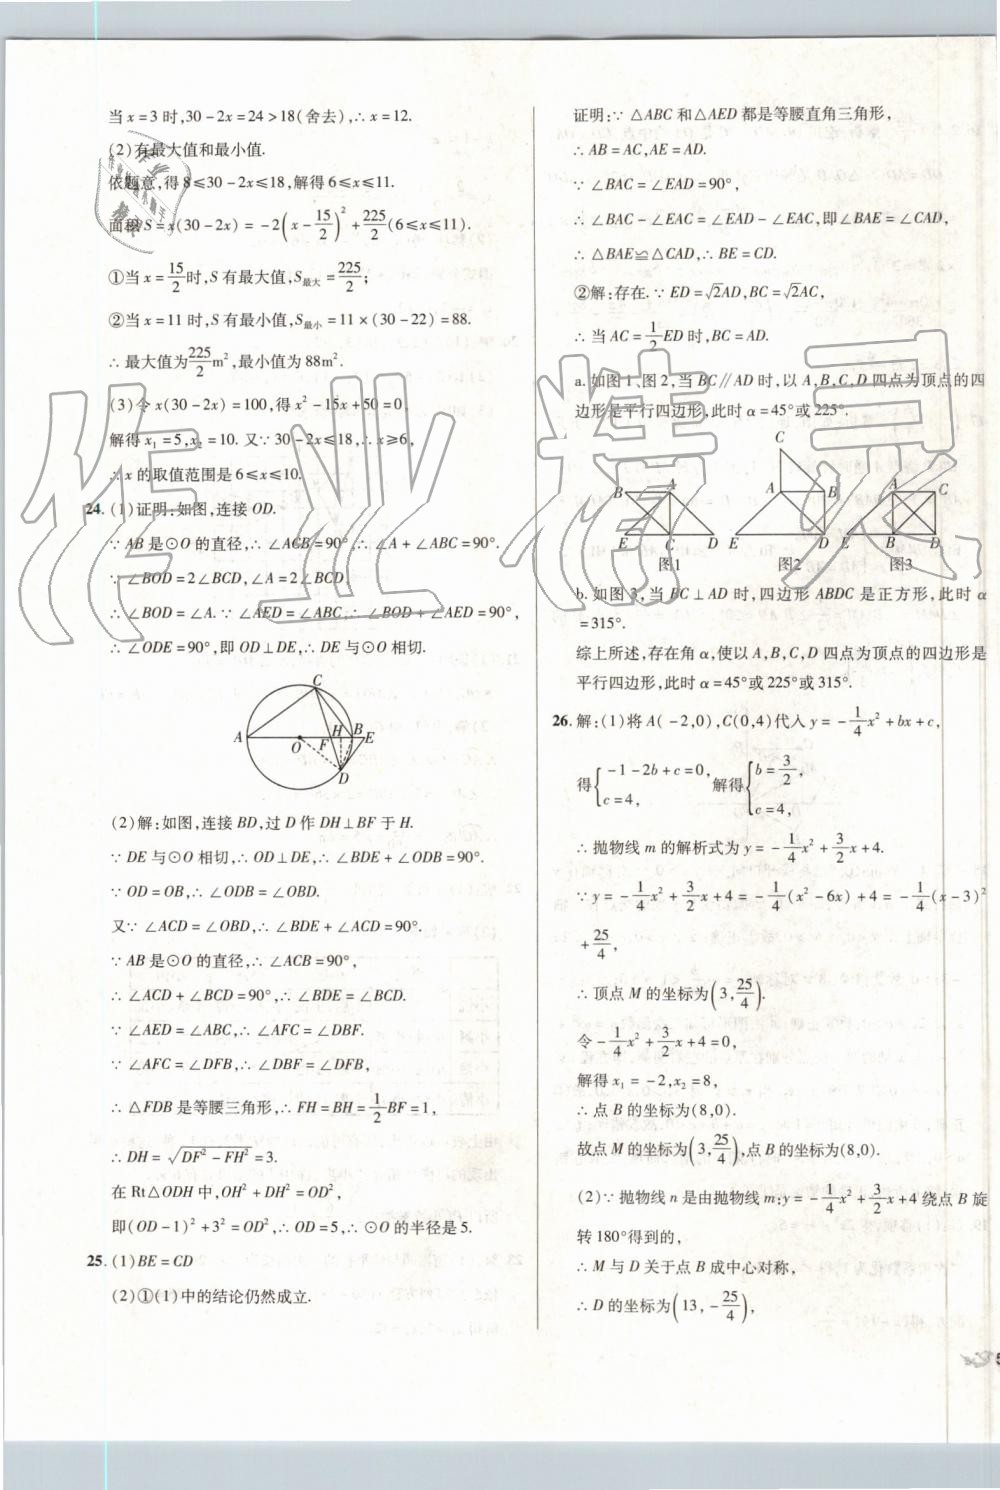 当x=3时,30-2x=24>18(舍去),∴x=12.
(2)有最大值和最小值.
依题意,得8≤30-2x≤18,解得6≤x≤11.
面积S=x(30-2x)=-2(x-15/2)²+225/2(6≤x≤11).
①当x=15/2时,S有最大值,S最大=225/2;
②当x=11时,S有最小值,S最小=11×(30-22)=88.
∴最大值为225/2m²,最小值为88m².
(3)令x(30-2x)=100,得x²-15x+50=0,
解得x₁=5,x₂=10.又∵30-2x≤18,∴x≥6,
∴x的取值范围是6≤x≤10.
24.(1)证明:如图,连接OD.
∵AB是⊙O的直径,∴∠ACB=90°,∴∠A+∠ABC=90°.
∵∠BOD=2∠BCD,∠A=2∠BCD,
∴∠BOD=∠A.∵∠AED=∠ABC,∴∠BOD+∠AED=90°,
∴∠ODE=90°,即OD⊥DE,∴DE与⊙O相切.
C
A O F H B E
D
(2)解:如图,连接BD,过D作DH⊥BF于H.
∵DE与⊙O相切,∴OD⊥DE,∴∠BDE+∠ODB=90°.
∵OD=OB,∴∠ODB=∠OBD.
又∵∠ACD=∠OBD,∴∠BDE+∠ACD=90°.
∵AB是⊙O的直径,∴∠ACB=90°,
∴∠ACD+∠BCD=90°,∴∠BDE=∠BCD.
∵∠AED=∠ABC,∴∠AFC=∠DBF.
∵∠AFC=∠DFB,∴∠DBF=∠DFB,
∴△FDB是等腰三角形,∴FH=BH=1/2BF=1,
∴DH=√(DF²-FH²)=3.
在Rt△ODH中,OH²+DH²=OD²,
即(OD-1)²+3²=OD²,∴OD=5,∴⊙O的半径是5.
25.(1)BE=CD
(2)①(1)中的结论仍然成立.
证明:∵△ABC和△AED都是等腰直角三角形,
∴AB=AC,AE=AD.
∵∠BAC=∠EAD=90°,
∴∠BAC-∠EAC=∠EAD-∠EAC,即∠BAE=∠CAD,
∴△BAE≌△CAD,∴BE=CD.
②解:存在.∵ED=√2AD,BC=√2AC,
∴当AC=1/2ED时,BC=AD.
a.如图1、图2,当BC∥AD时,以A,B,C,D四点为顶点的四
边形是平行四边形,此时α=45°或225°.
B A E C D 图1
C A B E D 图2
A C E B D 图3
b.如图3,当BC⊥AD时,四边形ABDC是正方形,此时α
=315°.
综上所述,存在角α,使以A,B,C,D四点为顶点的四边形是
平行四边形,此时α=45°或225°或315°.
26.解:(1)将A(-2,0),C(0,4)代入y=-1/4x²+bx+c,
得{-1-2b+c=0, c=4, 解得{b=3/2, c=4,
∴抛物线m的解析式为y=-1/4x²+3/2x+4.
∵y=-1/4x²+3/2x+4=-1/4(x²-6x)+4=-1/4(x-3)²
+25/4,
∴顶点M的坐标为(3,25/4).
令-1/4x²+3/2x+4=0,
解得x₁=-2,x₂=8,
∴点B的坐标为(8,0).
故点M的坐标为(3,25/4),点B的坐标为(8,0).
(2)∵抛物线n是由抛物线m:y=-1/4x²+3/2x+4绕点B旋
转180°得到的,
∴M与D关于点B成中心对称,
∴D的坐标为(13,-25/4),
作业精灵